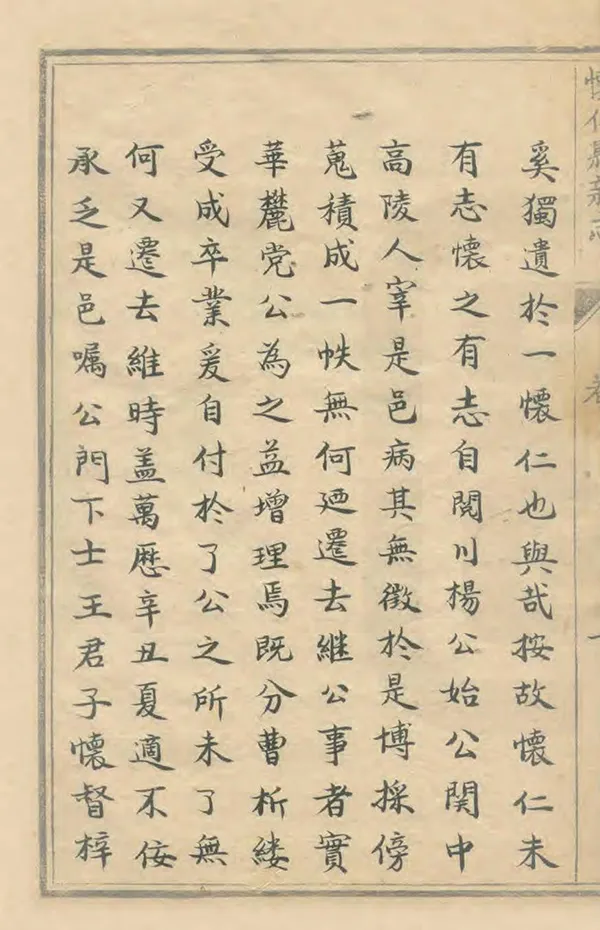 懷仁縣新志
卷
一
奚獨遺於一懷仁也與哉按故懷仁未
有志懷之有志自閱川楊公始公関中
高陵人宰是邑病其無徴於是博採傍
蒐積成一帙無何廼遷去継公事者實
華麓党公為之益增理焉既分曹析縷
受成卒業爰自付於了公之所未了無
何又遷去維時盖萬厯辛丑夏適不佞
承乏是邑嘱公門下士王君子懷督梓